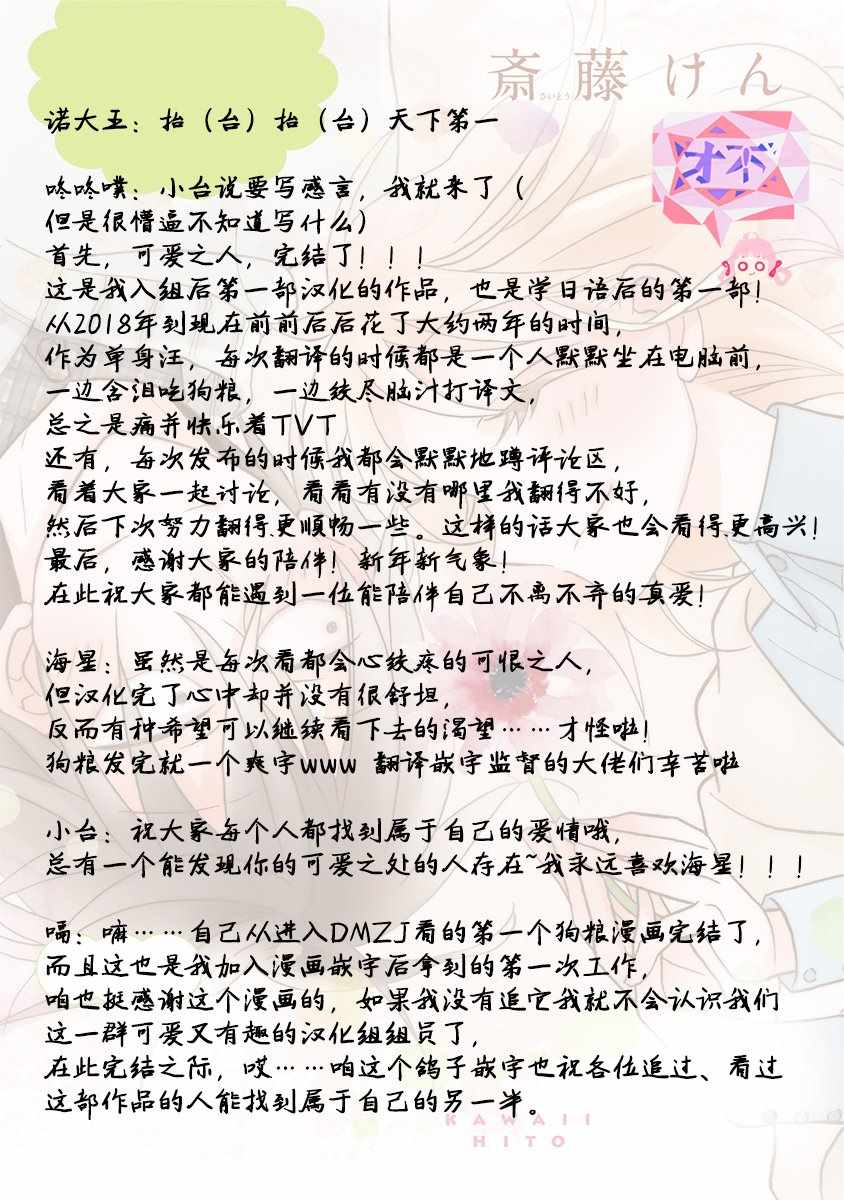 斎藤けん
さいとう
诺大王：抬（台）抬（台）天下第一
才不
咚咚噗：小台说要写感言，我就来了（
但是很懵逼不知道写什么）
首先，可爱之人，完结了！！！
这是我入组后第一部汉化的作品，也是学日语后的第一部！
从2018年到现在前前后后花了大约两年的时间，
作为单身汪，每次翻译的时候都是一个人默默坐在电脑前，
一边含泪吃狗粮，一边绞尽脑汁打译文，
总之是痛并快乐着TVT
还有，每次发布的时候我都会默默地蹲评论区，
看着大家一起讨论，看看有没有哪里我翻得不好，
然后下次努力翻得更顺畅一些。这样的话大家也会看得更高兴！
最后，感谢大家的陪伴！新年新气象！
在此祝大家都能遇到一位能陪伴自己不离不弃的真爱！
海星：虽然是每次看都会心绞疼的可恨之人，
但汉化完了心中却并没有很舒坦，
反而有种希望可以继续看下去的渴望……才怪啦！
狗粮发完就一个爽字www 翻译嵌字监督的大佬们辛苦啦
小台：祝大家每个人都找到属于自己的爱情哦，
总有一个能发现你的可爱之处的人存在~我永远喜欢海星！！！
嗝：嘛……自己从进入DMZJ看的第一个狗粮漫画完结了，
而且这也是我加入漫画嵌字后拿到的第一次工作，
咱也挺感谢这个漫画的，如果我没有追它我就不会认识我们
这一群可爱又有趣的汉化组组员了，
在此完结之际，哎……咱这个鸽子嵌字也祝各位追过、看过
这部作品的人能找到属于自己的另一半。
KAWAII
HITO